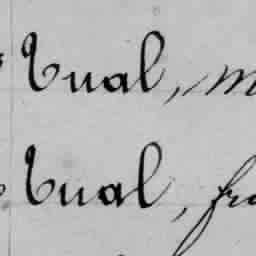 Tual, m
Tual, fra